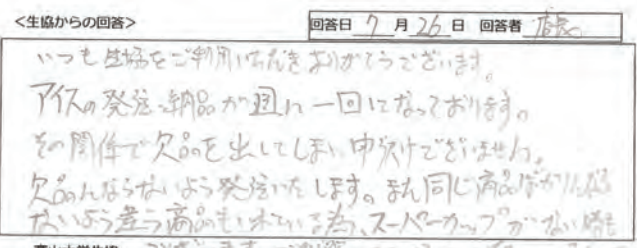 <生協からの回答>
回答日 7 月 26 日 回答者 店長
いつも生協をご利用いただきありがとうございます。
アイスの発注・納品が週に一回になっております。
その関係で欠品を出してしまい申し訳ございません。
欠品にならないよう発注いたします。また同じ商品ばかりになら
ないよう違う商品もいれている為、スーパーカップがない時も